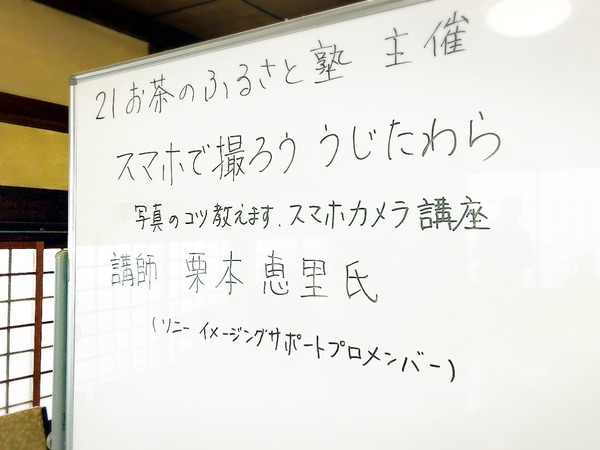 21お茶のふるさと塾 主催
スマホで撮ろう うじたわら
写真のコツ教えます.スマホカメラ講座
講師 栗本恵里氏
(ソニーイメージングサポートプロメンバー)